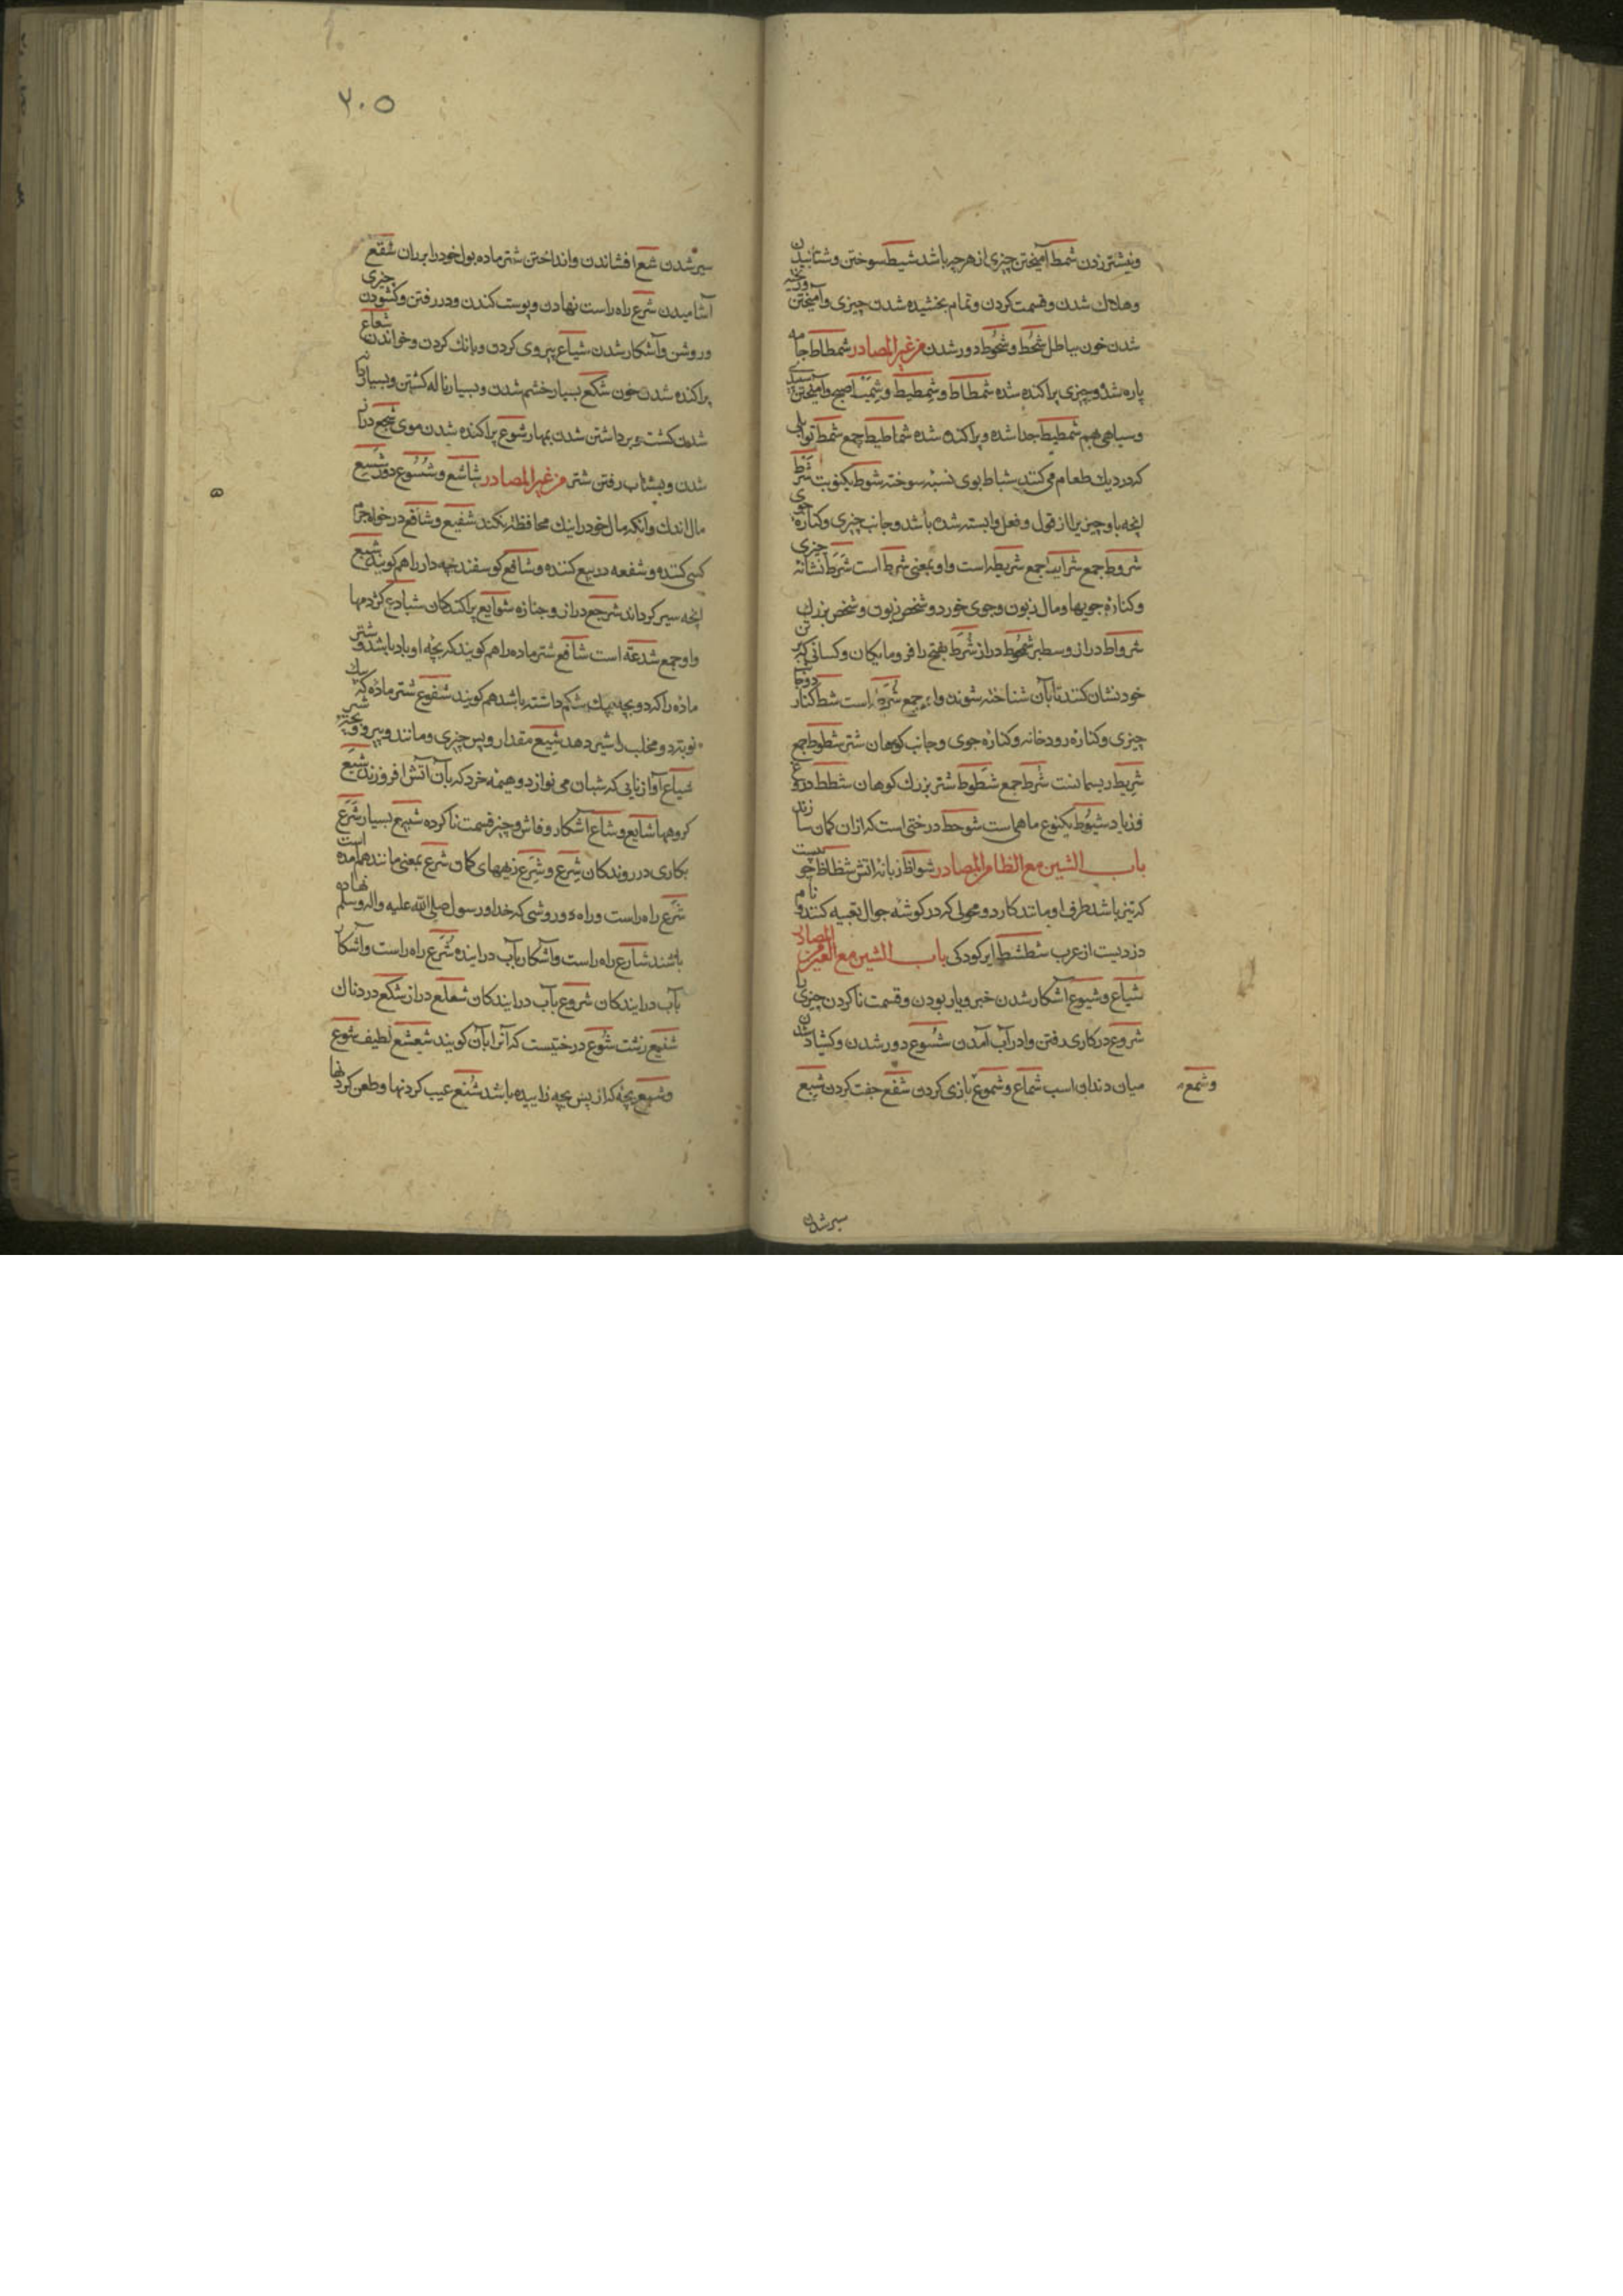 ونیشتر زدن شمط آمیختن چیزی از هر چه باشد شیط سوختن و شتابیدن
و هلاك شدن و قسمت کردن و تمام بخشیده شدن چیزی و آمیختن
شدن خون بباطل شحط و شحوط دور شدن من غیر المصادر شمطاط جامه
پاره شده و چیزی پراکنده شده شمطاط و شمطیط و شمیط صبح و آمیختن
و سیاهی بهم شمطیط جدا شده و پراکنده شده شماطیط جمع شمط توابلی
که در دیك طعام می کنند شیاط بوی پنبه سوخته شوط یکنوبت شرط
انچه باو چیزیرا از قول و فعل وابسته شده باشد و جانب چیزی و کناره جوی
شروط جمع شرایط جمع شریطه است و او بمعنی شرط است شرط نشانه چیزی
و کناره جویها و مال زبون و جوی خورد و شخص زبون و شخص بزرك
شرواط دراز و سطبر شمحوط دراز شرط بفتح را فرومایکان و کسانی که تن
خود نشان کنند تا بآن شناخته شوند و او جمع شرطه است شط کنار
چیزی و کناره رودخانه و کناره جوی و جانب کوهان شتر شطوط جمع
شریط ریسمانست شرط جمع شطوط شتر بزرك کوهان شطط دروغ
و زیاد شبوط یکنوع ماهی است شوحط درختی است که از ان کمان سازند
باب الشین مع الظا من المصادر شواظ زبانه اتش شظاظ چوبیست
که تیز باشد طرف او مانند کارد و محولی که در کوشه جوال تعبیه کنند و نام
دزدیست از عرب شظشظ ایر کودکی باب الشین مع العین من المصادر
شیاع و شیوع آشکار شدن خبر و یار بودن و قسمت ناکردن چیزی را
شروع در کاری رفتن و در آب آمدن شسوع دور شدن و کشاد شدن
میان دندان اسب شماع و شموع بازی کردن شفع جفت کردن شبع
وشمع
سیر شدن
۲۰۵
سیر شدن شع افشاندن و انداختن شتر ماده بول خود را بر ران شقع
آشامیدن شرع راه راست نهادن و پوست کندن و در رفتن و کشودن چیزی
و روشن و آشکار شدن شیاع پیروی کردن و بانك کردن و خواندن شعاع
پراکنده شدن خون شکع بسیار خشم شدن و بسیار ناله کشتن و بسیار
شدن کشت و برداشتن شدن بهار شوع پراکنده شدن موی شجع دراز
شدن و بشتاب رفتن شتر من غیر المصادر شاسع و شسوع دور شسیع
مال اندك و آنکه مال خود را نیك محافظه نکند شفیع و شافع درخواه جرم
کسی کننده و شفعه در بیع کننده و شافع کوسفند بچه دار را هم کویند شبیع
انچه سیر کرداند شرجع دراز و جنازه شوایع پراکندکان شبادع کژدمها
و او جمع شدعة است شافع شتر ماده را هم کویند که بچه او باو باشد و شتر
ماده را که دو بچه بیك شکم داشته باشد هم کویند شفوع شتر ماده که بیك
نوبت دو مخلب شیر دهد شیع مقدار و پس چیزی و مانند و پیرو و بچه شیر
شیاع آواز نایی که شبان می نوازد و هیمه خرد که بآن آتش افروزند شیع
کروهها شایع و شاع آشکار و فاش و چیز قسمت ناکرده شبیع بسیار شرع
بکاری در روندکان شرع و شرع زههای کمان شرع بمعنی مانند هم آمده است
شرع راه راست و راه و روشی که خدا و رسول صلی الله علیه واله وسلم نهاده
باشند شارع راه راست و آشکار بآب در آینده شرع راه راست و آشکار
بآب در ایندکان شروع بآب در ایندکان شعلع دراز شکع دردناك
شنیع زشت شوع درختیست که آنرا بان کویند شعشع لطیف شوع
و شیع بچه که از پس بچه زاییده باشد شنع عیب کردنها و طعن کردنها